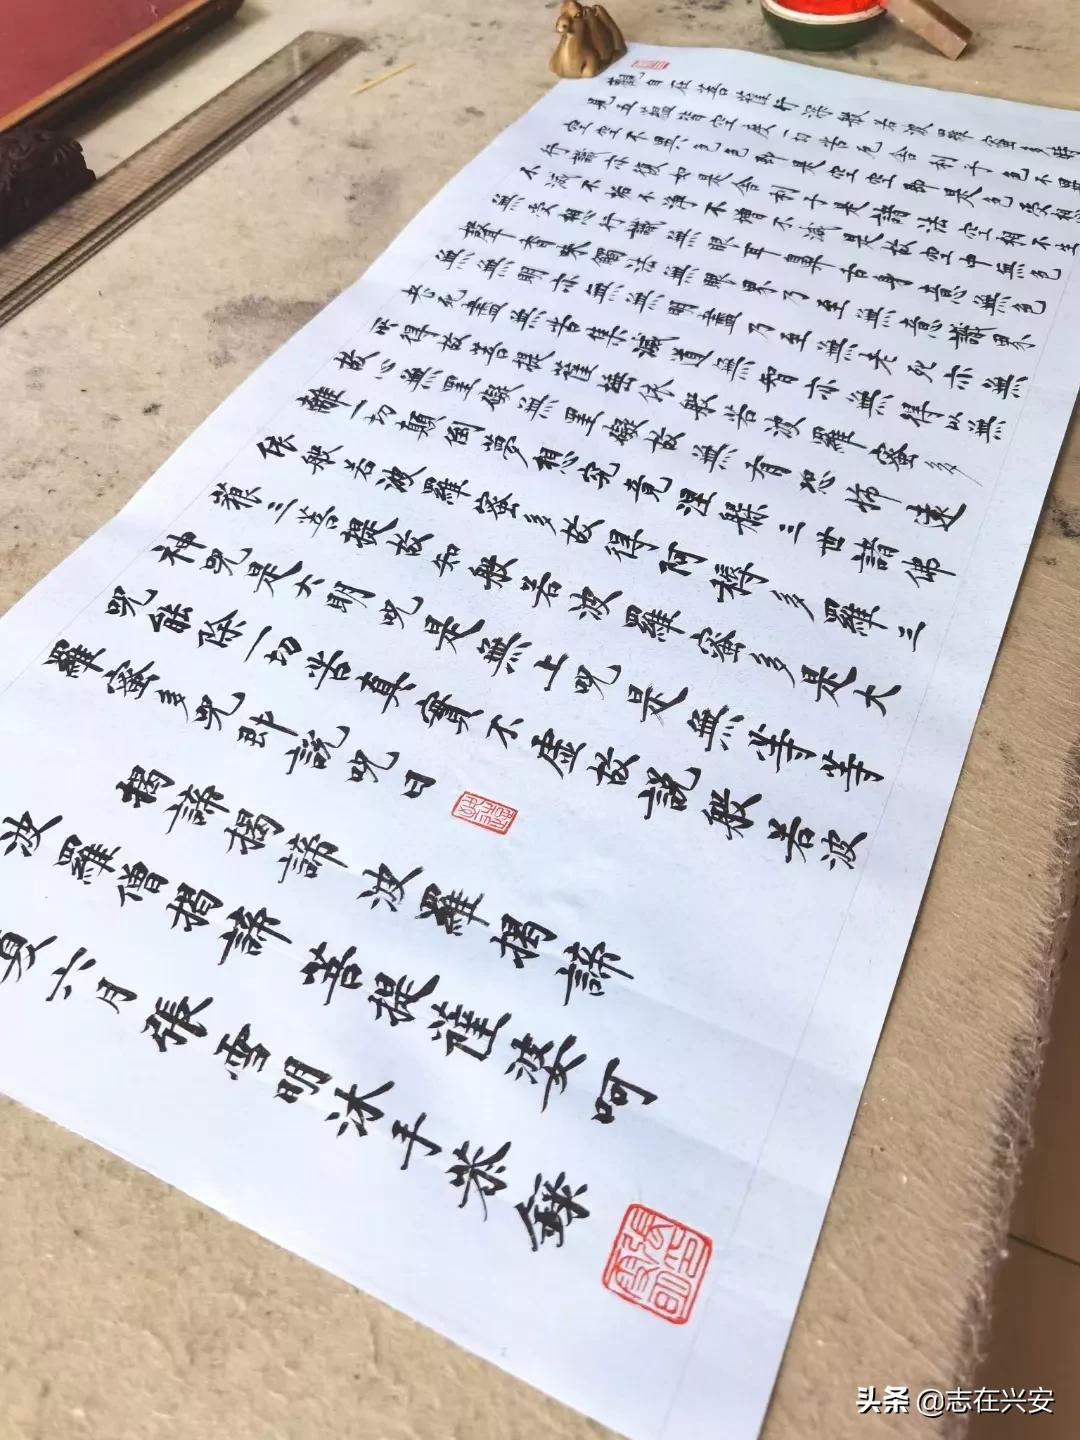 觀自在菩薩行深般若波羅蜜多時
見五蘊皆空度一切苦厄舍利子色不異
空空不異色色即是空空即是色受想
行識亦復如是舍利子是諸法空相不生
不滅不垢不淨不增不減是故空中無色
無受想行識無眼耳鼻舌身意無色
聲香味觸法無眼界乃至無意識界
無無明亦無無明盡乃至無老死亦無
老死盡無苦集滅道無智亦無得以無
所得故菩提薩埵依般若波羅蜜多
故心無罣礙無罣礙故無有恐怖遠
離一切顛倒夢想究竟涅槃三世諸佛
依般若波羅蜜多故得阿耨多羅三
藐三菩提故知般若波羅蜜多是大
神咒是大明咒是無上咒是無等等
咒能除一切苦真實不虛故說般若波
羅蜜多咒即說咒曰
揭諦揭諦波羅揭諦
波羅僧揭諦菩提薩婆呵
夏六月張雪明沐手恭錄
張雪明印
头条 @志在兴安